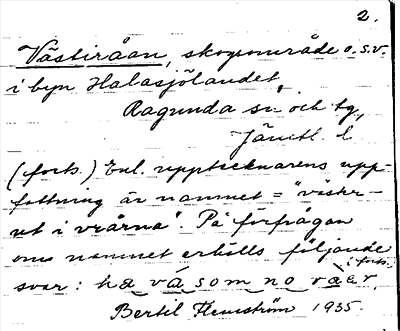 2.
Västiråan, skogsområde o.s.v.
i byn Halasjölandet,
Ragunda sn och tg,
Jämtl. l
(forts.) Enl. upptecknarens upp-
fattning är namnet = "väster-
ut i vrårna". På förfrågan
om namnet erhölls följande
svar: ha vá som no
(forts.
Bertil Flemström 1935.